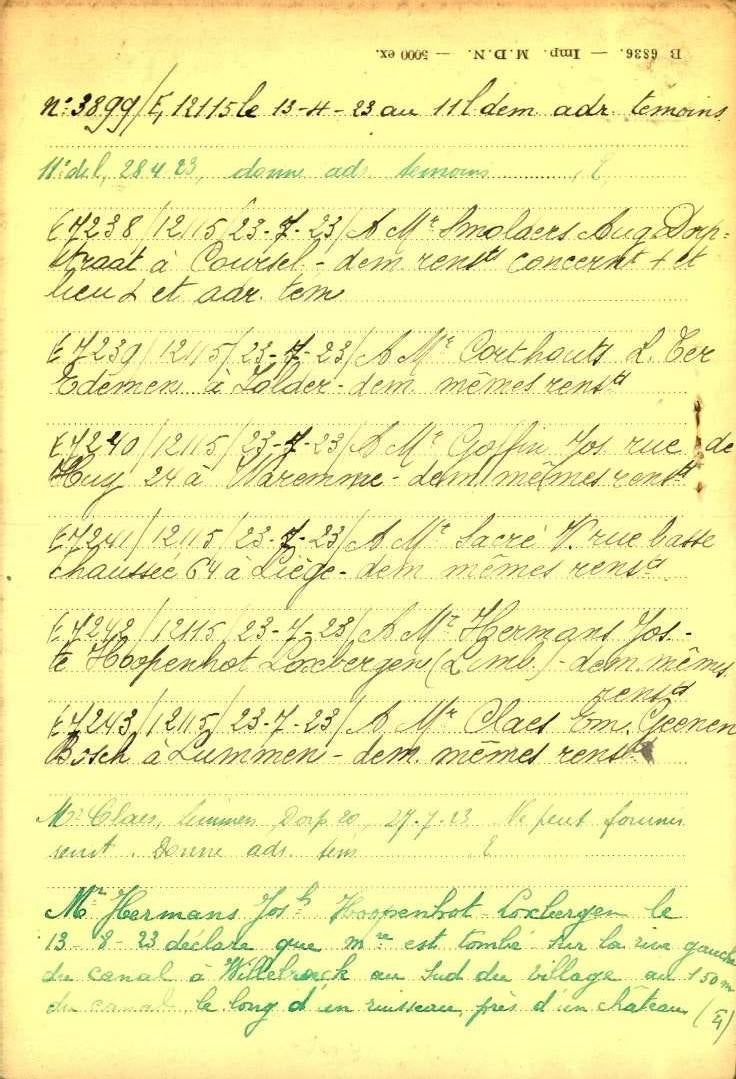 B 6836. — Imp. M.D.N. — 5000 ex.
n° 3899/E, 12115 le 13-4-23 au 11 l dem adr. temoins
11e del, 28 4 23, donne adr. temoins E,
E 7238/12115/23-7-23/ A Mr Smolders Aug Dorp=
straat à Coursel - dem. rensts concernt + et
lieu + et adr. tem
E 7239/12115/23-7-23/ A Mr Corthouts L. Ter
Edemen à Zolder - dem. mêmes rensts
E 7240/12115/23-7-23/ A Mr Goffin Jos. rue de
Huy 24 à Waremme - dem mêmes rensts
E 7241/12115/23-7-23/ A Mr Sacré V. rue basse
chaussée 64 à Liège - dem mêmes rensts
E 7242/12115/23-7-23/ A Mr Hermans Jos. -
te Hoopenhot Loxbergen (Limb.) - dem. mêmes
rensts
E 7243/12115/23-7-23/ A Mr Claes Em. Geenen
Bosch à Lummen - dem. mêmes rensts
Mr Claes, Lummen, Dorp 20, 27-7-23 Ne peut fournir
. Donne adr. tem E
Mr Hermans Josh Hoopenhot Loxbergen le
13-8-23 déclare que mre est tombé sur la rive gauche
du canal à Willebroeck au sud du village au 150 m
du canal le long d'un ruisseau, près d'un château (E)